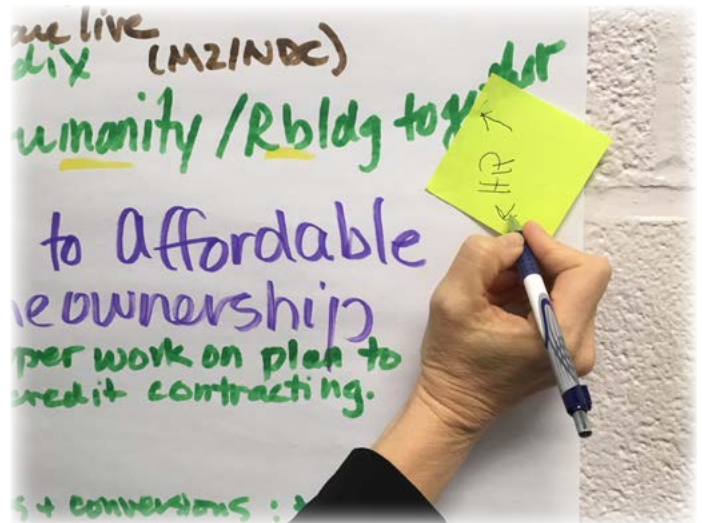 live
(M2/NDC)
umanity / Rbldg together
HP
to Affordable
eownership
per work on plan to
credit contracting.
s + conversions :